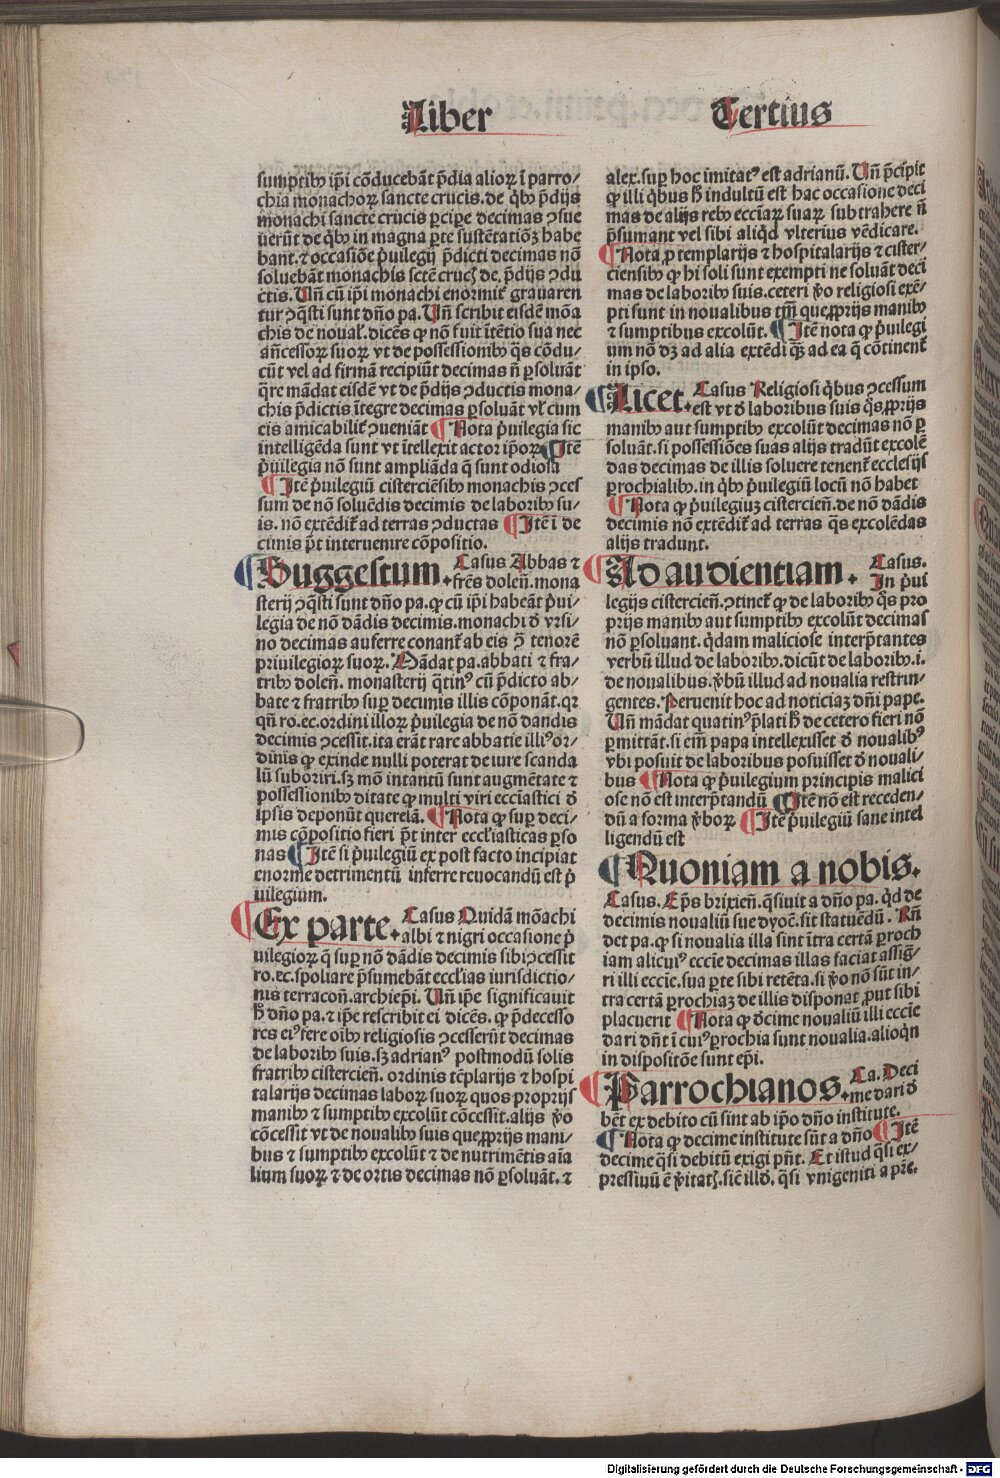 Liber Tertius
sumptibꝰ ip̄i cōducebāt p̄dia alioꝝ ī parro/
chia monachoꝝ sancte crucis. de q̇bꝰ p̄dijs
monachi sancte crucis ꝑciꝑe decimas ꝯsue
uerūt de q̇bꝰ in magna ꝑte sustētatiōꝫ habe
bant. ⁊ occasiōe p̄uilegij p̄dicti decimas nō
soluebāt monachis sctē cruč de. p̄dijs ꝯdu
ctis. Uñ cū ip̄i monachi enormiť grauaren
tur ꝯq̄sti sunt dño pa. Uñ scribit eisdē mōa
chis de noual'. dicēs ꝙ nō fuit ītētio sua nec
añcessoꝝ suoꝝ vt de possessionibꝰ q̄s cōdu/
cūt vel ad firmā recipiūt decimas ñ ꝑsoluāt
q̄re mādat eisdē vt de p̄dijs ꝯductis mona/
chis p̄dictis ītegre decimas ꝑsoluāt vl' cum
eis amicabiliť ꝯueniāt ¶ Nota p̄uilegia sic
intelligēda sunt vt ītellexit actor ip̄oꝝ ¶ Itē
p̄uilegia nō sunt ampliāda q̄ sunt odiosa
¶ Itē p̄uilegiū cisterciēsibꝰ monachis ꝯces
sum de nō soluēdis decimis de laboribꝰ su/
is. nō extēdiť ad terras ꝯductas ¶ Itē ī de
cimis p̄t interuenire cōpositio.
¶ Suggestum. Casus Abbas ⁊
frēs doleñ. mona
sterij ꝯq̄sti sunt dño pa. ꝙ cū ip̄i habeāt p̄ui/
legia de nō dādis decimis. monachi đ vrsi/
no decimas auferre conanť ab eis ꝯ̄ tenorē
priuilegioꝝ suoꝝ. Mādat pa. abbati ⁊ fra/
tribꝰ doleñ. monasterij q̄tinꝰ cū p̄dicto ab/
bate ⁊ fratribꝰ suꝑ decimis illis cōponāt. qꝛ
qñ ro. ec. ordini illoꝝ p̄uilegia de nō dandis
decimis ꝯcessit. ita erāt rare abbatie illiꝰ or/
dinis ꝙ exinde nulli poterat de iure scanda
lū suboriri. sꝫ mō intantū sunt augmētate ⁊
possessionibꝰ ditate ꝙ multi viri ecciastici đ
ipsis deponūt querelā. ¶ Nota ꝙ suꝑ deci/
mis cōpositio fieri p̄t inter eccl'iasticas ꝑso
nas ¶ Itē si p̄uilegiū ex post facto incipiat
enorme detrimentū inferre reuocandū est p̄
uilegium.
¶ Ex parte. Casus Quidā mōachi
albi ⁊ nigri occasione p̄
uilegioꝝ q̄ suꝑ nō dādis decimis sibi ꝯcessit
ro. ec. spoliare p̄sumebāt eccl'ias iurisdictio/
nis terracoñ. archiep̄i. Uñ ip̄e significauit
h̄ dño pa. ⁊ ip̄e rescribit ei dicēs. ꝙ p̄decesso
res eiꝰ fere oībꝰ religiosis ꝯcesserūt decimas
de laboribꝰ suis. sꝫ adrianꝰ postmodū solis
fratribꝰ cistercieñ. ordinis tēplarijs ⁊ hospi
talarijs decimas laboꝝ suoꝝ quos proprijs
manibꝰ ⁊ sumptibꝰ excolūt cōcessit. alijs ꝟo
cōcessit vt de noualibꝰ suis que ꝓprijs mani/
bus ⁊ sumptibꝰ excolūt ⁊ de nutrimētis aīa
lium suoꝝ ⁊ de ortis decimas nō ꝑsoluāt. ⁊
alex. suꝑ hoc imitatꝰ est adrianū. Uñ p̄cipit
ꝙ illi q̇bus h̄ indultū est hac occasione deci
mas de alijs rebꝰ ecciaꝝ suaꝝ subtrahere ñ
p̄sumant vel sibi aliq̇d vlterius vēdicare.
¶ Nota ꝓ templarijs ⁊ hospitalarijs ⁊ cister/
ciensibꝰ ꝙ hi soli sunt exempti ne soluāt deci
mas de laboribꝰ suis. ceteri ꝟo religiosi exē/
pti sunt in noualibus tm̄ que ꝓprijs manibꝰ
⁊ sumptibus excolūt. ¶ Itē nota ꝙ p̄uilegi
um nō dꝫ ad alia extēdi q̄ꝫ ad ea q̄ cōtinenť
in ipso.
¶ Licet. Casus Religiosi q̇bus ꝯcessum
est vt đ laboribus suis q̄s ꝓprijs
manibꝰ aut sumptibꝰ excolūt decimas nō ꝑ
soluāt. si possessiōes suas alijs tradūt excolē
das decimas de illis soluere tenenť ecclesijs
ꝑrochialibꝰ. in q̇bꝰ p̄uilegiū locū nō habet
¶ Nota ꝙ p̄uilegiuꝫ cistercieñ. de nō dādis
decimis nō extēdiť ad terras q̄s excolēdas
alijs tradunt.
¶ Ad audientiam. Casus.
In p̄ui
legijs cistercieñ. ꝯtineť ꝙ de laboribꝰ q̄s pro
prijs manibꝰ aut sumptibꝰ excolūt decimas
nō ꝑsoluant. q̇dam maliciose interp̄tantes
verbū illud de laboribꝰ. dicūt de laboribꝰ. i.
de noualibus. ꝟbū illud ad noualia restrin/
gentes. Peruenit hoc ad noticiaꝫ dñi pape.
Uñ mādat quatinꝰ p̄lati h̄ de cetero fieri nō
ꝑmittāt. si eīm papa intellexisset đ noualibꝰ
vbi posuit de laboribus posuisset đ nouali/
bus ¶ Nota ꝙ p̄uilegium principis malici
ose nō est interp̄tandū ¶ Itē nō est receden/
dū a forma ꝟboꝝ ¶ Itē p̄uilegiū sane intel
ligendū est
¶ Quoniam a nobis.
Casus. Ep̄s brixieñ. q̄siuit a dño pa. q̇d de
decimis noualiū sue dyoč. sit statuēdū. Rñ
det pa. ꝙ si noualia illa sint ītra certā ꝑroch
iam alicuiꝰ eccīe decimas illas faciat assig̃/
ri illi eccīe. sua ꝑte sibi retēta. si ꝟo nō sūt in/
tra certā ꝑrochiaꝫ de illis disponat ꝓut sibi
placuerit ¶ Nota ꝙ đcime noualiū illi eccīe
dari dñt ī cuiꝰ ꝑrochia sunt noualia. alioq̇n
in dispositōe sunt ep̄i.
¶ Parrochianos. Ca. Deci
me dari đ
bēt ex debito cū sint ab ip̄o dño institute.
¶ Nota ꝙ decime institute sūt a dño ¶ Itē
decime q̄si debitū exigi pñt. Et istud q̄si ex/
pressiuū ē ꝟitatꝭ. sic̄ illđ. q̄si vnigeniti a pr̄e.
Digitalisierung gefördert durch die Deutsche Forschungsgemeinschaft - DFG